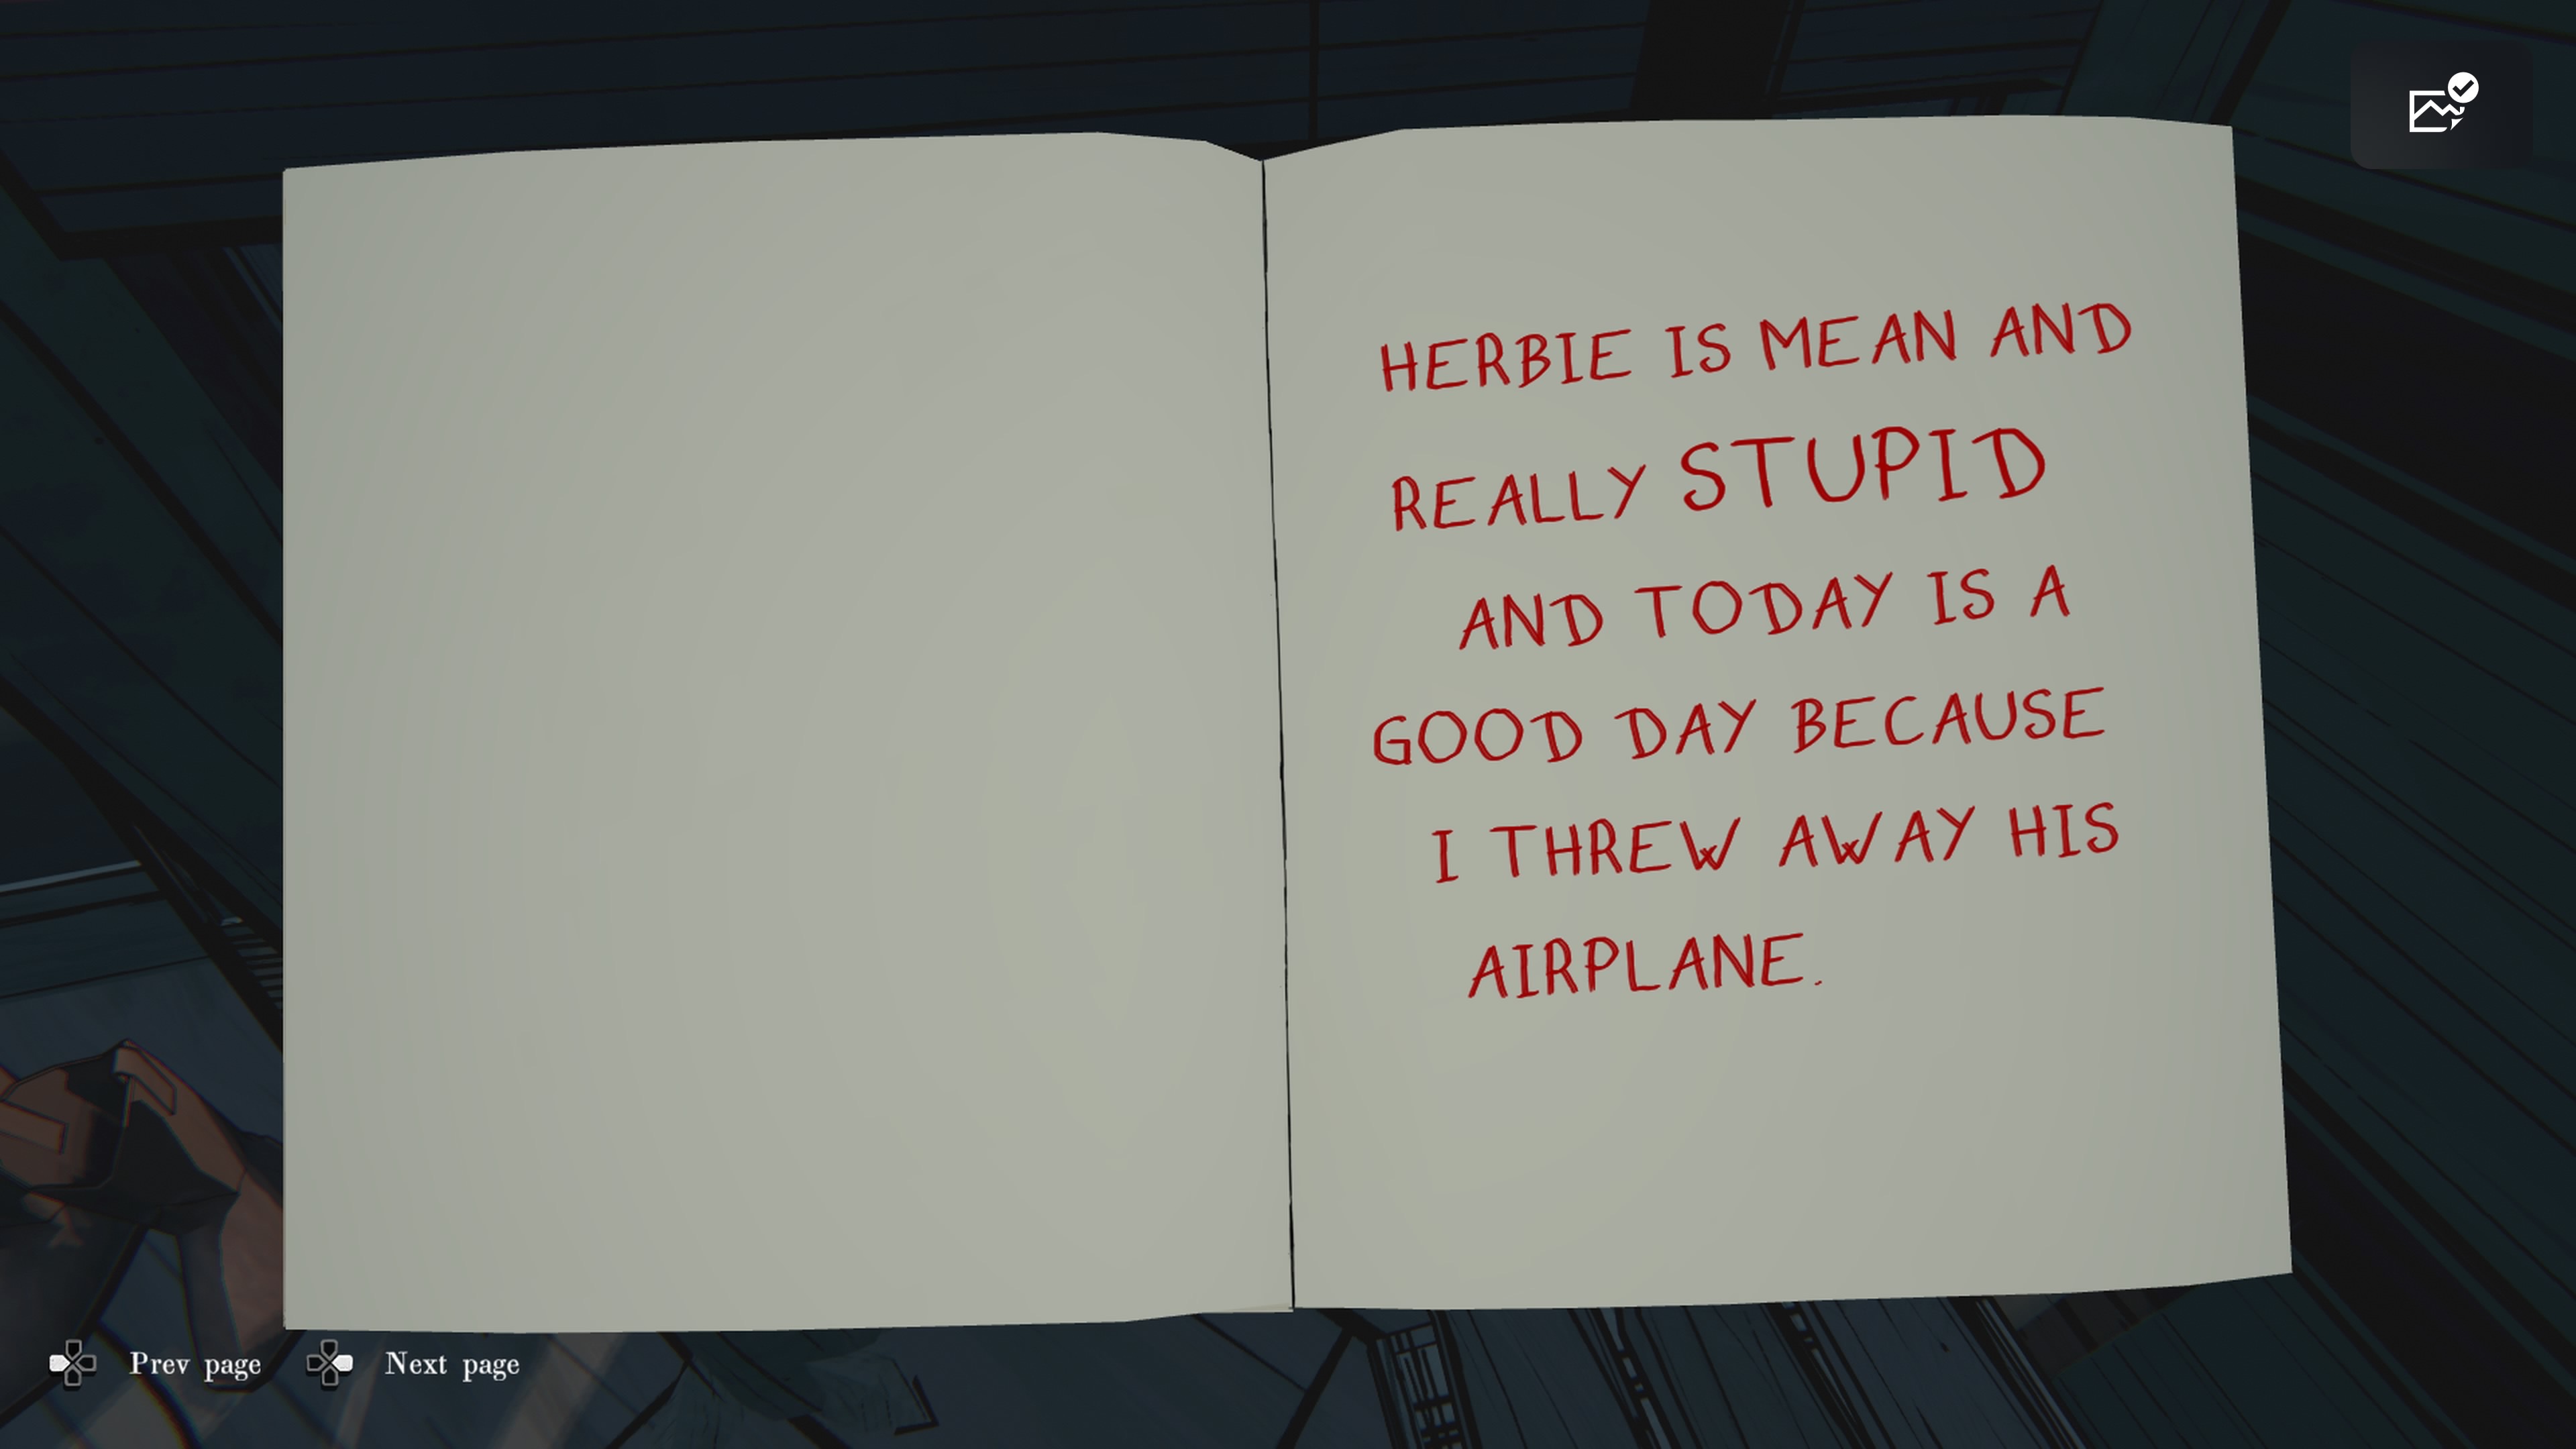 HERBIE IS MEAN AND
REALLY STUPID
AND TODAY IS A
GOOD DAY BECAUSE
I THREW AWAY HIS
AIRPLANE.
Prev page Next page